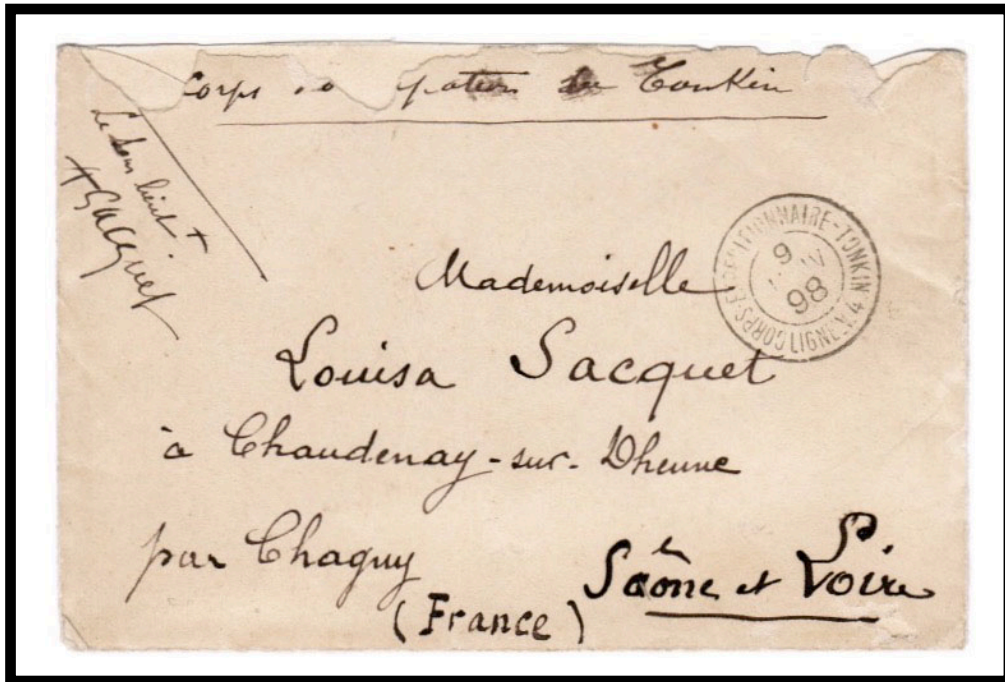 Corps o pation du Tonkin
Le Sous lieut
Sacquet
CORPS-EXPEDITIONNAIRE-TONKIN
9
98
LIGNE.N.4
Mademoiselle
Louisa Sacquet
à Chaudenay-sur-Dheune
par Chagny
Saône et Loire
(France)